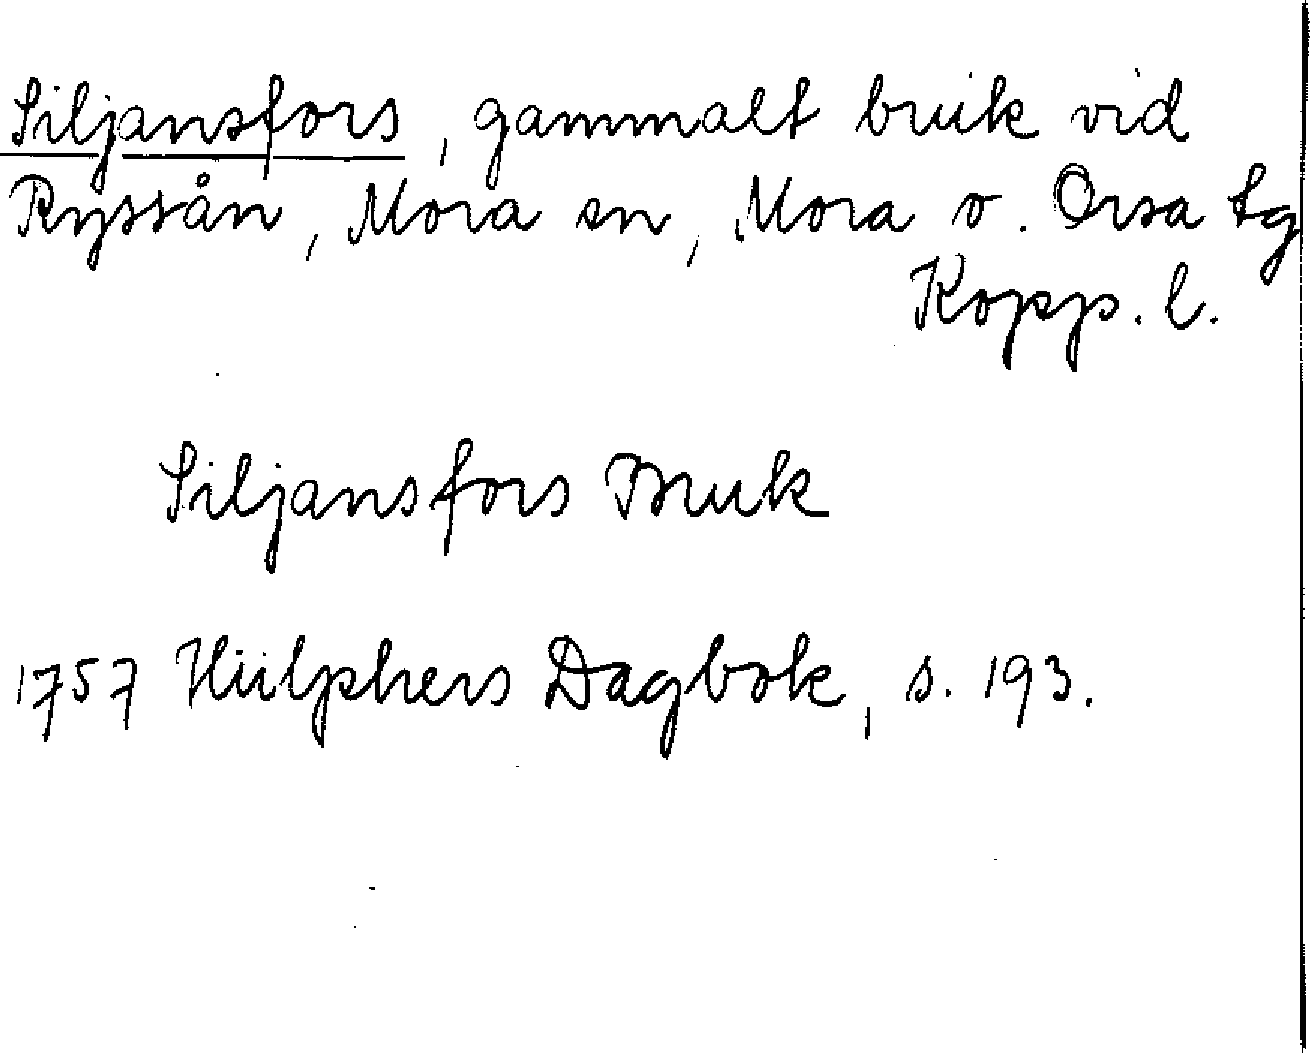 Siljansfors, gammalt bruk vid
Ryssån, Mora sn, Mora o. Orsa tg
Kopp. l.
Siljansfors Bruk
1757 Hülphers Dagbok, s. 193.